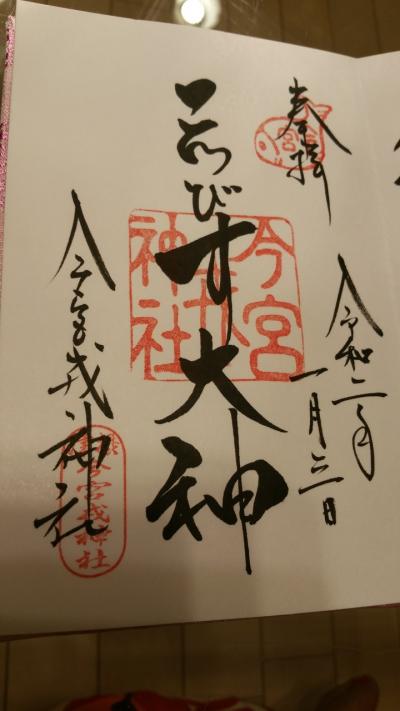 奉拝
令和二年
一月三日
ゑびす大神
今宮戎神社
今宮戎神社
今宮戎神社